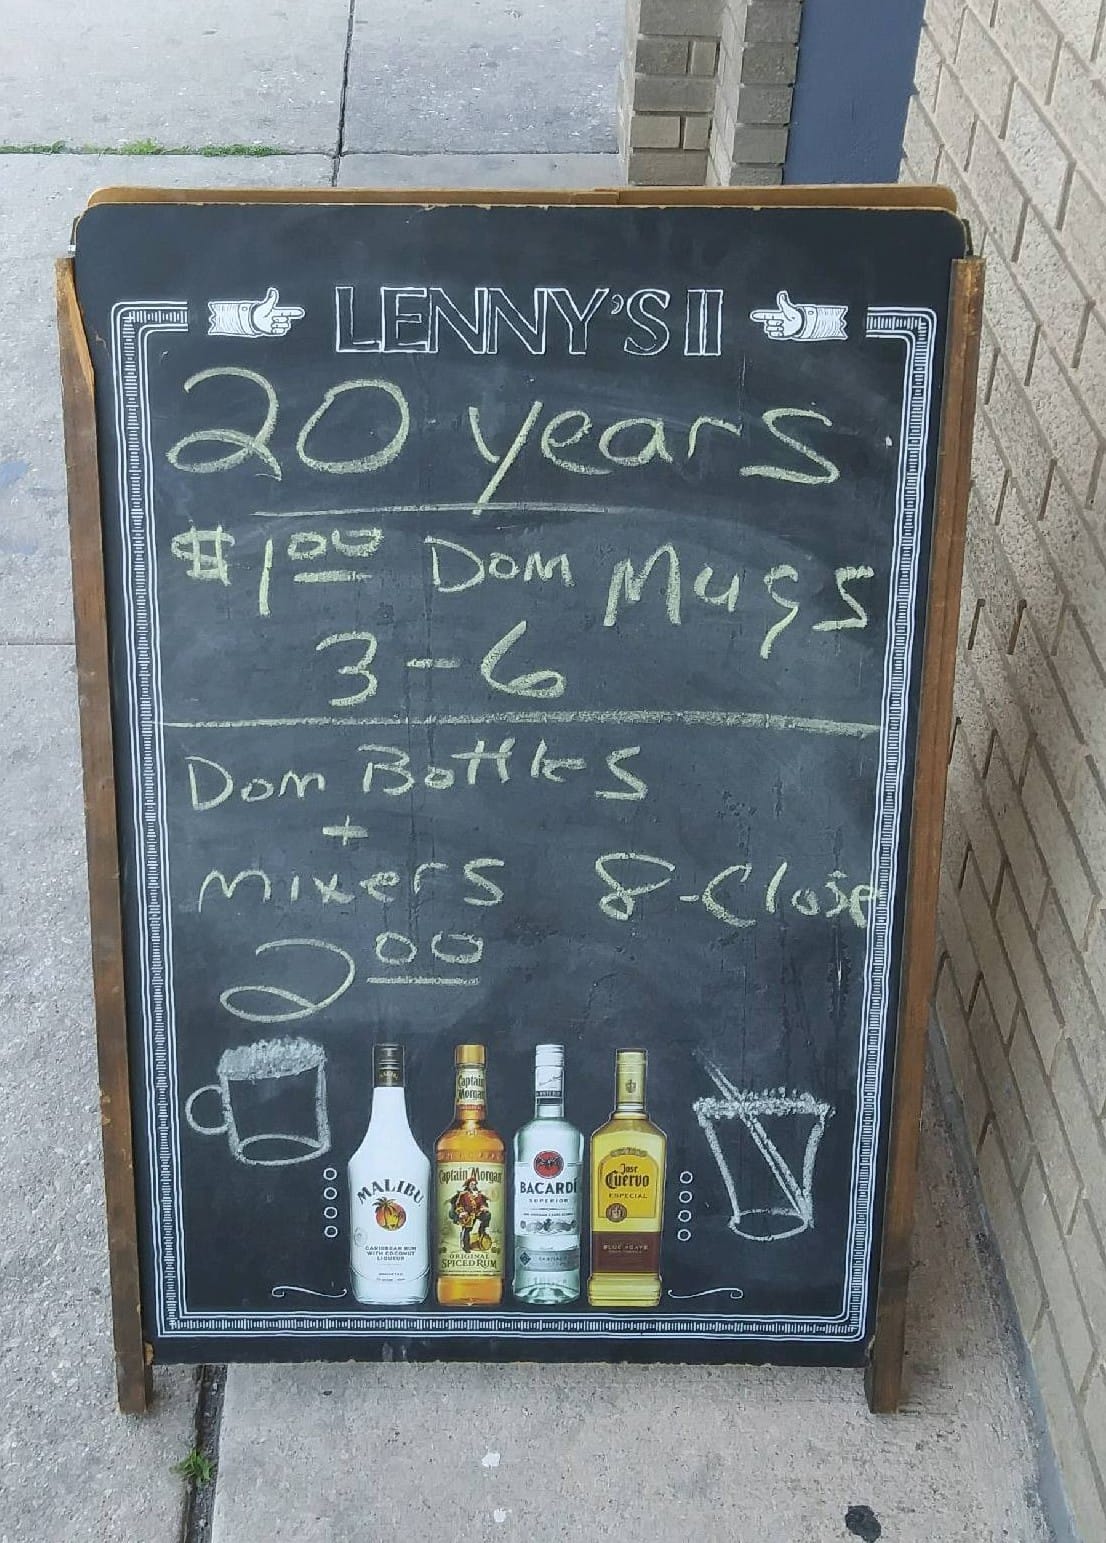 LENNY'S II
20 years
$1.00 Dom Mugs
3-6
Dom Bottles
+
Mixers 8-Close
2.00
MALIBU
CARIBBEAN RUM
WITH COCONUT
LIQUEUR
Captain
Morgan
Captain Morgan
ORIGINAL
SPICED RUM
BACARDI
SUPERIOR
Jose
Cuervo
ESPECIAL
BLUE AGAVE